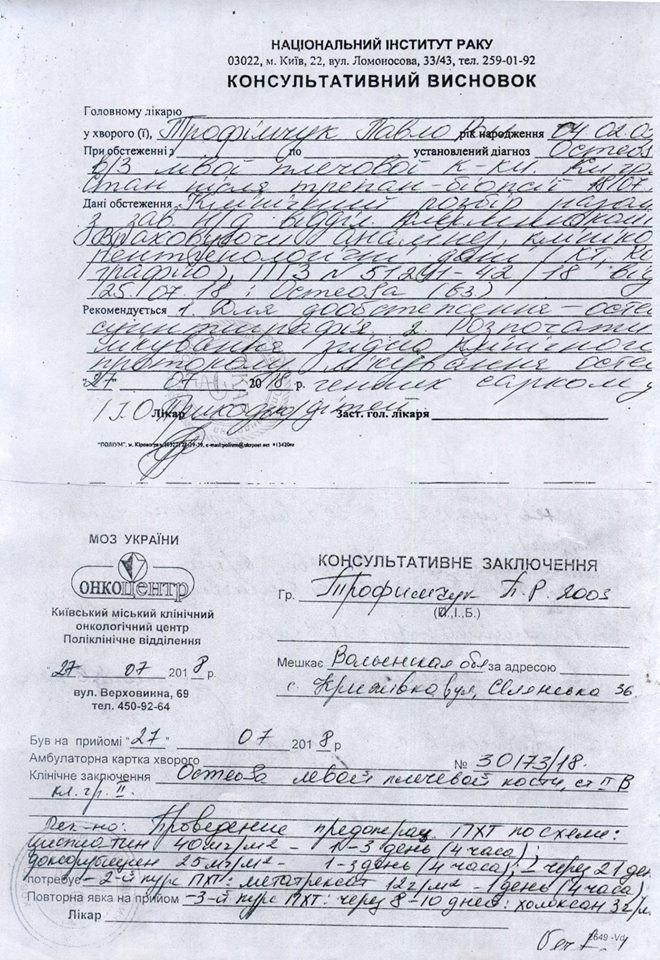 НАЦІОНАЛЬНИЙ ІНСТИТУТ РАКУ
03022, м. Київ, 22, вул. Ломоносова, 33/43, тел. 259-01-92
КОНСУЛЬТАТИВНИЙ ВИСНОВОК
Головному лікарю
у хворого (ї), Трофімчук Павло рік народження 04 02 03
При обстеженні з по установлений діагноз Остеоs
в/3 лівої плечової к-ки. Кл
Стан після трепан-біопсії 18/07.
Дані обстеження Клінічний розбір
з зав
Враховуючи анамнез, клініко
рентгенологічні дані (КТ,
графію), ПГЗ N 51291-42/18 від
25.07.18 : Остеоsa (G3)
Рекомендується 1. Для дообстеження – остео
сцинтиграфія 2. Розпочати
лікування згідно клінічного
протоколу лікування остео
"27" 07 2018 р. генних сарком у
Лікар дітей Заст. гол. лікаря
"ПОЛІУМ", м. Кіровоград
МОЗ УКРАЇНИ
ОНКОЦЕНТР
Київський міський клінічний
онкологічний центр
Поліклінічне відділення
"27" 07 2018 р.
вул. Верховинна, 69
тел. 450-92-64
КОНСУЛЬТАТИВНЕ ЗАКЛЮЧЕННЯ
Гр. Трофимчук П.Р. 2003
(П.,І.,Б.)
Мешкає Волынская обл за адресою
с. вул, Селянська 36.
Був на прийомі "27" 07 2018 р
Амбулаторна картка хворого № 30173/18.
Клінічне заключення Остеоsa левой плечевой кости, ст II B
кл. гр. II.
Рек-но: Проведение предоперац. ПХТ по схеме:
цисплатин 40мг/м² – 1-3 день (4 часа);
доксорубицин 25мг/м² – 1-3 день (4 часа); через 21 день
потребує – 2-й курс ПХТ: метатрексат 12г/м² – 1 день (4 часа)
Повторна явка на прийом – 3-й курс ПХТ: через 8-10 дней: холоксан 3г/м
Лікар